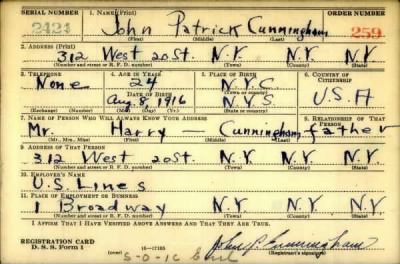 SERIAL NUMBER 1. NAME (Print) ORDER NUMBER
2424 John Patrick Cunningham 259
(First) (Middle) (Last)
2. ADDRESS (Print)
312 West 20 St. N.Y. N.Y. N.Y
(Number and street or R. F. D. number) (Town) (County) (State)
3. TELEPHONE 4. AGE IN YEARS 5. PLACE OF BIRTH 6. COUNTRY OF CITIZENSHIP
None 24 N.Y.C.
DATE OF BIRTH (Town) U.S.A
Aug. 8, 1916 N.Y.S.
(Exchange) (Number) (Mo.) (Day) (Yr.) (State or country)
7. NAME OF PERSON WHO WILL ALWAYS KNOW YOUR ADDRESS 8. RELATIONSHIP OF THAT PERSON
Mr. Harry — Cunningham father
(Mr., Mrs., Miss) (First) (Middle) (Last)
9. ADDRESS OF THAT PERSON
312 West 20 St. N.Y. N.Y. N.Y
(Number and street or R. F. D. number) (Town) (County) (State)
10. EMPLOYER'S NAME
U.S. Lines
11. PLACE OF EMPLOYMENT OR BUSINESS
1 Broadway N.Y. N.Y. N.Y
(Number and street or R. F. D. number) (Town) (County) (State)
I AFFIRM THAT I HAVE VERIFIED ABOVE ANSWERS AND THAT THEY ARE TRUE.
REGISTRATION CARD
D. S. S. Form 1 John P. Cunningham
(Registrant's signature)